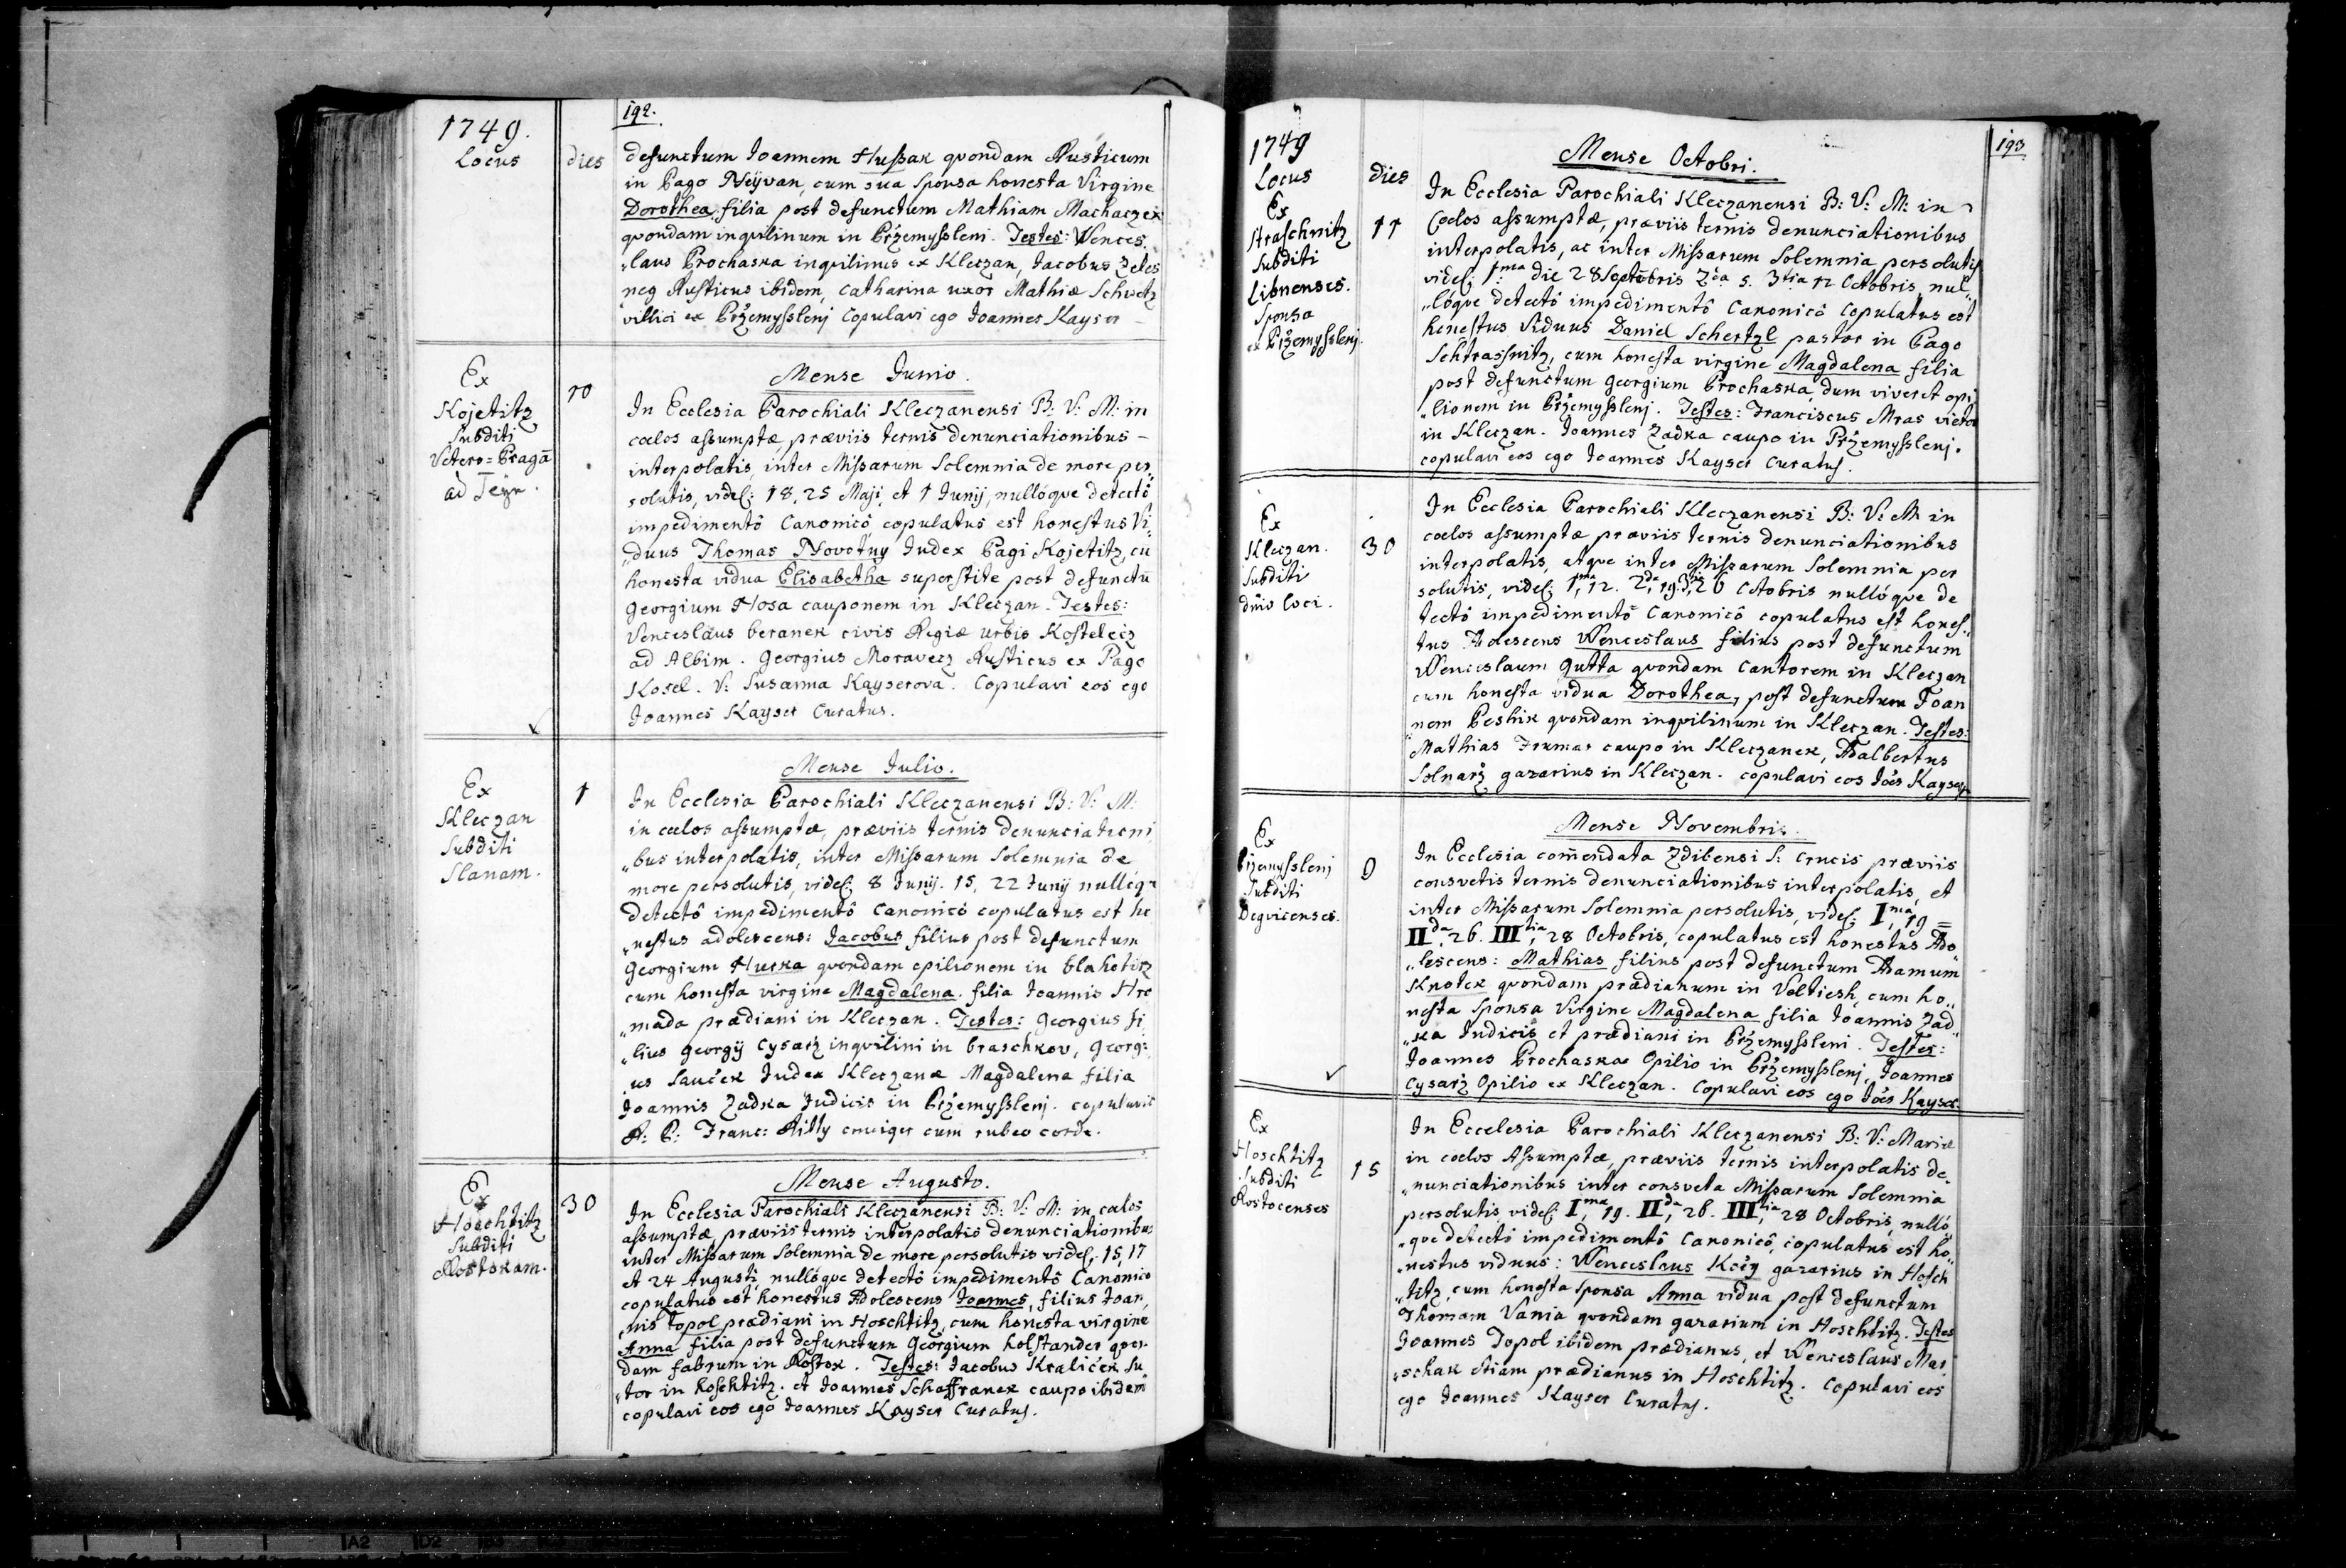 192.
1749.
Locus
dies
defunctum Joannem Hußak qvondam Rusticum
in Pago Neÿvan, cum sua Sponsa honesta Virgine
Dorothea, filia post defunctum Mathiam Machaczek
qvondam inqvilinum in Přemyßleni. Testes: Wences
„laus Prochaska inqvilinus ex Kleczan, Jacobus Zeles
neg Rusticus ibidem, Catharina uxor Mathiæ Schwetz
villici ex Pržemyßlenj Copulavi ego Joannes Kayser
Mense Junio.
Ex
Kojetitz
Subditi
Vetero=Pragā
ad Teÿn.
10
In Ecclesia Parochiali Kleczanensi B: V: M: in
cœlos aßumptæ, præviis ternis denunciationibus –
interpolatis, inter Mißarum Solemnia de more per„
solutis, videl: 18, 25 Maji, et 1 Junij, nullóque detectô
impedimentô Canonicô, copulatus est honestus Vi„
„duus Thomas Novotny Judex Pagi Kojetitz, cū
honesta vidua Elisabetha superstite post defunctū
Georgium Hosa cauponem in Kleczan. Testes:
Venceslaus beranek civis Regiæ urbis Kostelecz
ad Albim. Georgius Moravecz Rusticus ex Pago
Kosel. V: Susanna Kayserova. Copulavi eos ego
Joannes Kayser Curatus.
Mense Julio.
Ex
Kleczan
Subditi
Slanam.
1
In Ecclesia Parochiali Kleczanensi B: V: M:
in cœlos aßumptæ, præviis ternis denunciationi
„bus interpolatis, inter Mißarum Solemnia de
more persolutis, videl: 8 Junij. 15, 22 Junij nullóq:
detectô impedimentô Canonicô copulatus est ho
„nestus adolescens: Jacobus filius post defunctum
Georgium Hurka qvondam opilionem in blahotitz
cum honesta virgine Magdalena filia Joannis Hro
„mada prædiani in Kleczan. Testes: Georgius fi
„lius Georgij Cysarž inqvilini in braschkov, Georgi„
us Sauček Judex Kleczanæ Magdalena filia
Joannis Zadka Judicis in Pržemyßlenj. copulavit
R: P: Franc: Rilly cruciger cum rubeo corde.
Mense Augusto.
Ex
Hoschtitz
Subditi
Rostokam.
30
In Ecclesia Parochiali Kleczanensi B: V: M: in cœlos
aßumptæ, præviis ternis interpolatis denunciationibus
inter Mißarum Solemnia de more persolutis videl: 15, 17
et 24 Augusti, nullóque detectô impedimentô Canonico
copulatus est honestus Adolescens Joannes, filius Joan„
„nis Topol prædiani in Hoschtitz, cum honesta virgine
Anna filia post defunctum Georgium holstander qvon
dam fabrum in Rostok. Testes: Jacobus Kraliček Su
„tor in hoschtitz. et Joannes Schaffranek caupo ibidem
copulavi eos ego Joannes Kayser Curatus.
193
1749
Locus
dies
Mense Octobri.
Ex
Straschnitz
Subditi
Libnenses.
Sponsa
ex Pržemyßlenj
11
In Ecclesia Parochiali Kleczanensi B: V: M: in
Cœlos aßumptæ, præviis ternis denunciationibus
interpolatis, ac inter Mißarum Solemnia persolutis
videl: 1ma die 28 Septēbris 2da 5. 3tia 12 Octobris, nul„
„lóque detectô impedimentô Canonicô Copulatus est
honestus Viduus Daniel Schertzl pastor in Pago
Schtrassnitz, cum honesta virgine Magdalena filia
post defunctum Georgium Prochaska, dum viveret opi
„lionem in Pržemyßlenj. Testes: Franciscus Mras vietor
in Kleczan. Joannes Zadka caupo in Pržemyßlenj.
copulavi eos ego Joannes Kayser Curatus.
Ex
Kleczan.
Subditi
dn̄io loci.
30
In Ecclesia Parochiali Kleczanensi B: V: M: in
cœlos aßumptæ præviis ternis denunciationibus
interpolatis, atque inter Mißarum Solemnia per
solutis, videl: 1ma, 12. 2da, 19. 3tia, 26 Octobris nullóque de
tectô impedimentô Canonicô copulatus est hones„
tus Adolescens Wenceslaus filius post defunctum
Wenceslaum Gutta qvondam Cantorem in Kleczan
cum honesta vidua Dorothea, post defunctum Joan
„nem Peshik qvondam inqvilinum in Kleczan. Testes:
Mathias Frumar caupo in Kleczanek, Adalbertus
Solnarž gazarius in Kleczan. copulavi eos Jōes Kayser
Mense Novembris.
Ex
Pržemyßlenj
Subditi
Degvicenses.
9
In Ecclesia com̄endata Zdibensi S: Crucis præviis
consvetis ternis denunciationibus interpolatis, et
inter Mißarum Solemnia persolutis, videl: Ima, 19 =
IIda, 26. IIItia, 28 Octobris, copulatus est honestus Ado
„lescens: Mathias filius post defunctum Adamum
Knotek qvondam prædianum in Voltiesh, cum ho„
nesta Sponsa Virgine Magdalena filia Joannis Zad„
„ka Judicis et prædiani in Pržemyßleni. Testes:
Joannes Prochaska Opilio in Pržemyßlenj, Joannes
Cysarž Opilio ex Kleczan. Copulavi eos ego Jōes Kayser
Ex
Hoschtitz
Subditi
Rostocenses
15
In Eccelesia Parochiali Kleczanensi B: V: Mariæ
in cœlos Aßumptæ, præviis ternis interpolatis de„
„nunciationibus inter consveta Mißarum Solemnia
persolutis videl: Ima, 19. IIda, 26. IIItia, 28 Octobris, nulló
„que detectô impedimentô Canonicô, copulatus est ho„
„nestus viduus: Wenceslaus Kočy gazarius in Hosch
„titz, cum honesta Sponsa Anna vidua post defunctum
Thomam Vania qvondam gazarium in Hoschtitz. Testes
Joannes Topol ibidem prædianus, et Wenceslaus Mar
„schak etiam prædianus in Hoschtitz. Copulavi eos
ego Joannes Kayser Curatus.
A2